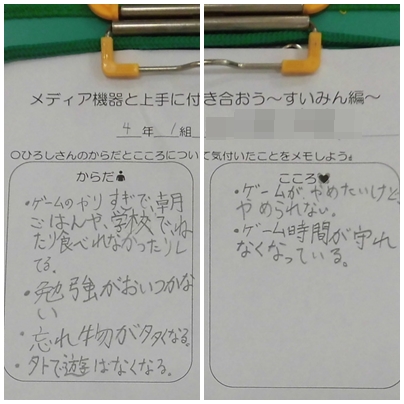 メディア機器と上手に付き合おう～すいみん編～
4年 1組
○ひろしさんのからだとこころについて気付いたことをメモしよう。
からだ
・ゲームのやりすぎで、朝
ごはんや、学校で、ね
たり食べれなかったりし
てる。
・勉強がおいつかな
い
・忘れ物が多くなる。
・外で遊ばなくなる。
こころ♥
・ゲームが、やめたいけど、
やめられない。
・ゲーム時間が守れ
なくなっている。